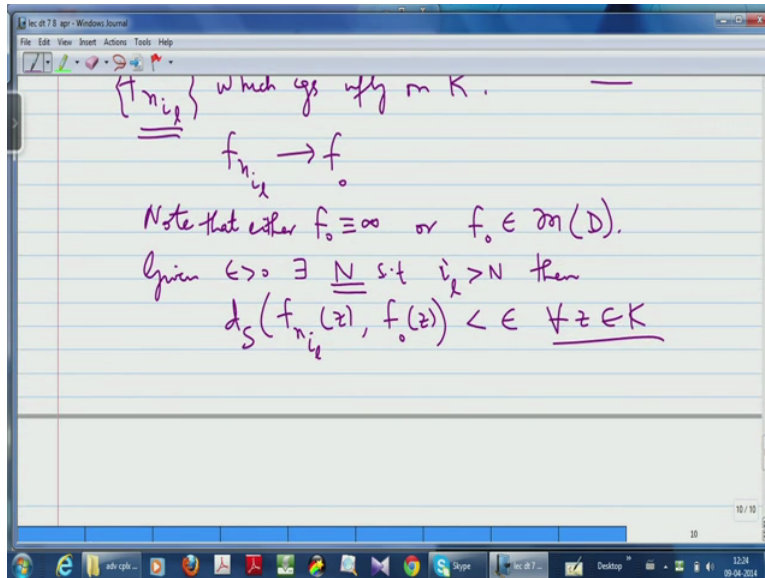 lec dt 7 8 apr - Windows Journal
File Edit View Insert Actions Tools Help
{f_{n_{i_l}}} which cgs ufly on K.
f_{n_{i_l}} → f_0
Note that either f_0 ≡ ∞ or f_0 ∈ m(D).
Given ε>0 ∃ N s.t i_l > N then
d_S(f_{n_{i_l}}(z), f_0(z)) < ε ∀ z ∈ K
10 / 10
10
adv cplx ... Skype lec dt 7 ... Desktop 12:24
09-04-2014